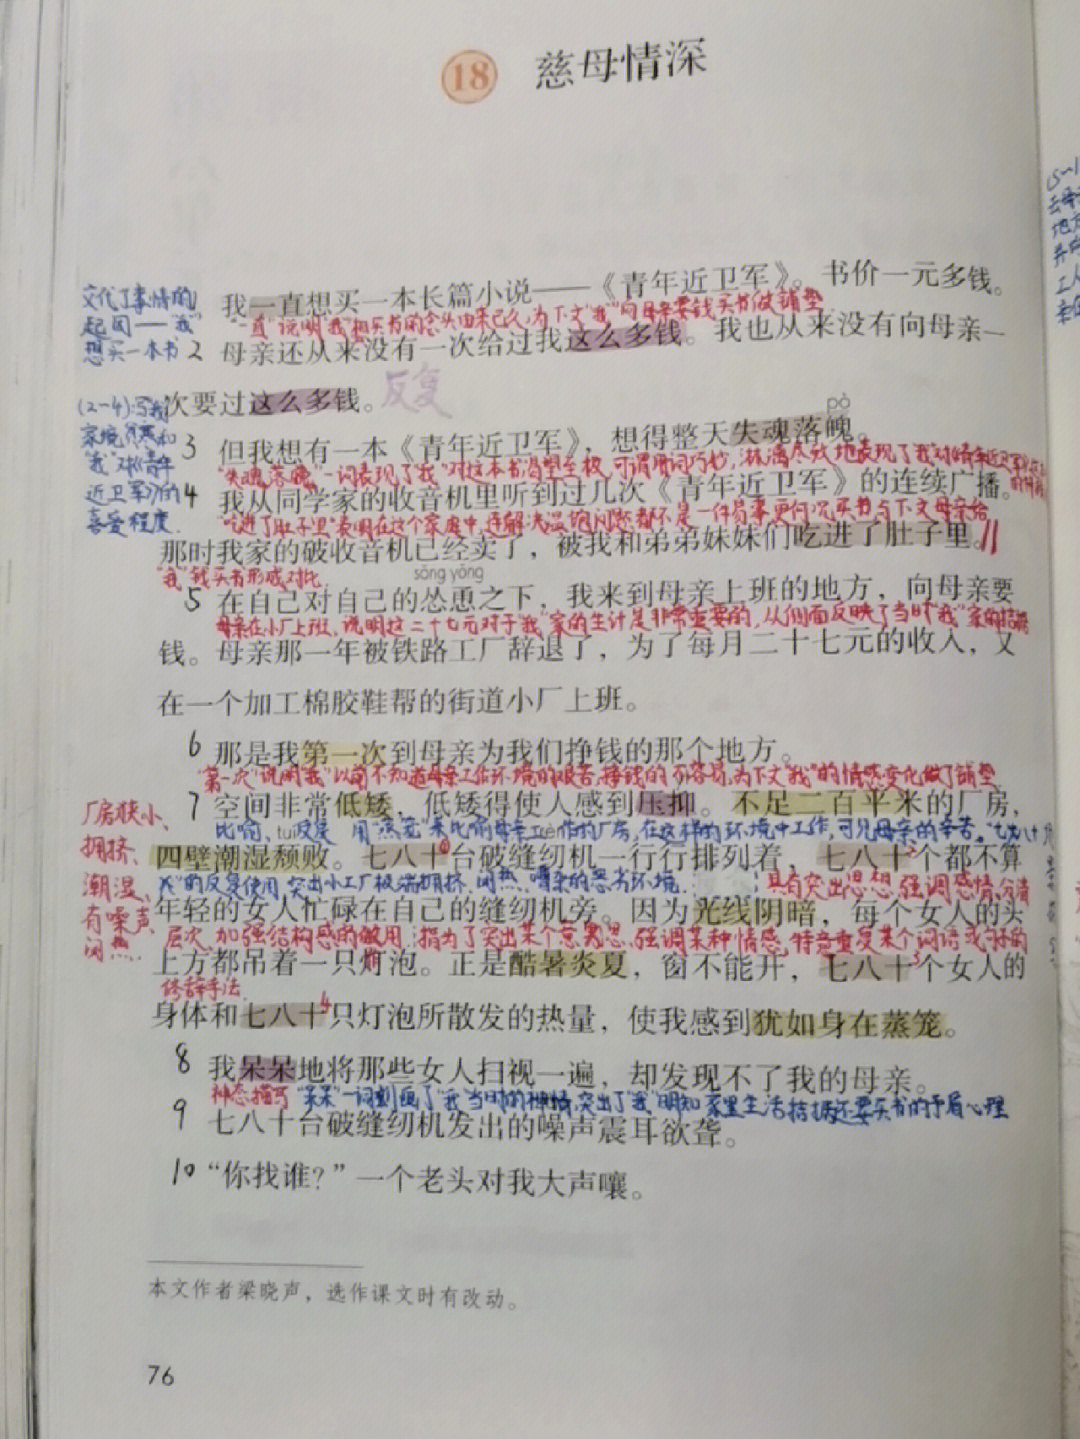 18 慈母情深
交代了事情的
起因——“我”
想买一本书
1 我一直想买一本长篇小说——《青年近卫军》。书价一元多钱。
“一直”说明“我”想买书的念头由来已久,为下文“我”向母亲要钱买书做铺垫
2 母亲还从来没有一次给过我这么多钱。我也从来没有向母亲一
次要过这么多钱。
反复
(2~4):写我
家境贫寒和
“我”对《青年
近卫军》的
喜爱程度.
pò
3 但我想有一本《青年近卫军》,想得整天失魂落魄。
“失魂落魄”一词表现了“我”对这本书渴望至极,可谓用词巧妙,淋漓尽致地表现了“我”对《青年近卫军》
4 我从同学家的收音机里听到过几次《青年近卫军》的连续广播。
“吃进了肚子里”表明在这个家庭中,连解决温饱问题都不是一件易事更何况买书与下文母亲给
那时我家的破收音机已经卖了,被我和弟弟妹妹们吃进了肚子里。
“我”钱买书形成对比.
sǒng yǒng
5 在自己对自己的怂恿之下,我来到母亲上班的地方,向母亲要
母亲在小厂上班,说明这二十七元对于“我”家的生计是非常重要的,从侧面反映了当时“我”家的拮据
钱。母亲那一年被铁路工厂辞退了,为了每月二十七元的收入,又
在一个加工棉胶鞋帮的街道小厂上班。
6 那是我第一次到母亲为我们挣钱的那个地方。
“第一次”说明“我”以前不知道母亲工作环境的艰苦,挣钱的不容易,为下文“我”的情感变化做了铺垫
厂房狭小、
拥挤、
潮湿、
有噪声、
闷热.
7 空间非常低矮,低矮得使人感到压抑。不足二百平米的厂房,
tuí
四壁潮湿颓败。七八十台破缝纫机一行行排列着,七八十个都不算
的反复使用,突出小工厂极端拥挤、闷热、嘈杂的恶劣环境.
具有突出思想、强调感情、分清
年轻的女人忙碌在自己的缝纫机旁。因为光线阴暗,每个女人的头
层次、加强结构感的做用.指为了突出某个意思,强调某种情感,特意重复某个词语或句子的
上方都吊着一只灯泡。正是酷暑炎夏,窗不能开,七八十个女人的
修辞手法.
身体和七八十只灯泡所散发的热量,使我感到犹如身在蒸笼。
8 我呆呆地将那些女人扫视一遍,却发现不了我的母亲。
神态描写 “呆呆”一词刻画了“我”当时的神情,突出了“我”明知家里生活拮据还要买书的矛盾心理
9 七八十台破缝纫机发出的噪声震耳欲聋。
10 “你找谁?”一个老头对我大声嚷。
本文作者梁晓声,选作课文时有改动。
76